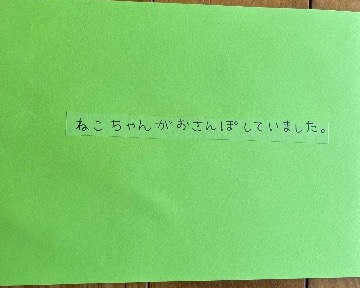 ねこちゃんがおさんぽしていました。